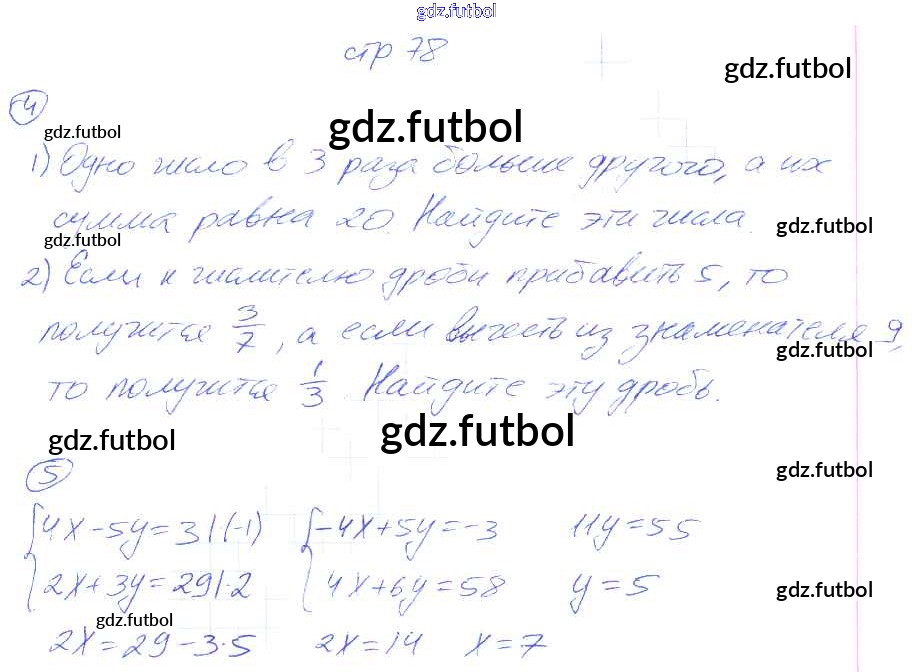 gdz.futbol
стр 78
gdz.futbol
4
gdz.futbol
gdz.futbol
1) Одно число в 3 раза больше другого, а их
сумма равна 20. Найдите эти числа.
gdz.futbol
gdz.futbol
2) Если к числителю дроби прибавить 5, то
получится 3/7, а если вычесть из знаменателя 9,
gdz.futbol
то получится 1/3. Найдите эту дробь.
gdz.futbol
gdz.futbol
gdz.futbol
5
{4x-5y=3|(-1) {-4x+5y=-3 11y=55
{2x+3y=29|·2 {4x+6y=58 y=5
gdz.futbol
gdz.futbol
2x=29-3·5 2x=14 x=7